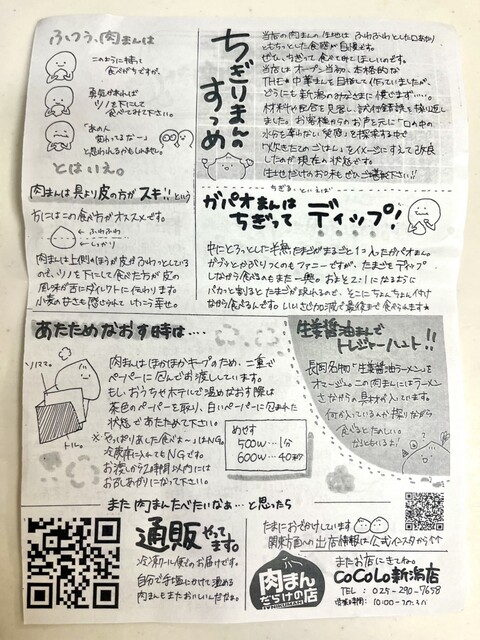 ふつう、肉まんは
このように持って
食べがちですが、
勇気があれば
ツノを下にして
食べてみて下さい。
「あの人
変わってるな〜」
と思われるかもしれません。
とはいえ。
肉まんは具より皮の方がスキ!!という
方にはこの食べ方がオススメです。
ふわふわ
しっかり
肉まんは上側のほうが皮がふわっとしている
ので、ツノを下にして食べた方が皮の
風味が舌にダイレクトに伝わります。
小麦の甘さも感じられていとおかし幸せ。
ちぎりまんの
すすめ
当店の肉まんの生地は ふわふわっとした口あたり
ともちっとした食感が自慢です。
ぜひ、ちぎって食べてみてほしいのです。
当店は オープン当初、本格的な
THE☆中華まんを目指して作っていましたが、
どうにも新潟のみなさまに
材料や配合を見直し、試行錯誤を繰り返し
ました。お客様からのお声を元に「口の中の
水分を奪わない食感」を探求する中で
「炊きたてごはん」をイメージにすえて改良
したのが現在の状態です。
生地だけのお味もぜひご堪能下さい!!
ちぎる といえば
ガパオまんは
ちぎって ディップ!
中にとろっとした半熟たまごがまるごと1コ入ったガパオまん。
ガブッとかぶりつくのもファニーですが、たまごをディップ
しながら食べるのもまた一興。およそ2:1になるように
パカっと割るとたまごが現れるので、そこにちょんちょん付け
ながら食べるんです。いいさじ加減で最後まで食べられます☆
あたためなおす時は…
ソリマス。
トル。
肉まんはほかほかキープのため、二重で
ペーパーに包んでお渡ししています。
もし、おうちやホテルで温めなおす際は
茶色のペーパーを取り、白いペーパーに包まれた
状態であたためて下さい。
※やっぱりあした食べま〜すはNG。
冷蔵庫に入れてもNGです。
お渡しから2時間以内には
お召しあがりになって下さい。
めやす
500W…1分
600W…40秒
生姜醤油まんで
トレジャーハント!!
長岡名物「生姜醤油ラーメン」を
オマージュ。この肉まんにはラーメン
さながらの具材が入っています。
何が入っているんか探りながら
食べるとたのしい。
かもともいる!
また肉まんたべたいなぁ…と思ったら
通販やって
ます。
冷凍クール便でのお届けです。
自分で手塩にかけて温める
肉まんもまたおいしいんだなぁ。
たまにおでかけしています
関東方面への出店情報は公式インスタから
肉まん
だらけの店
NIKUMAN
またお店にきてね。
CoCoLo新潟店
TEL: 025-290-7658
営業時間: 10:00-20:30